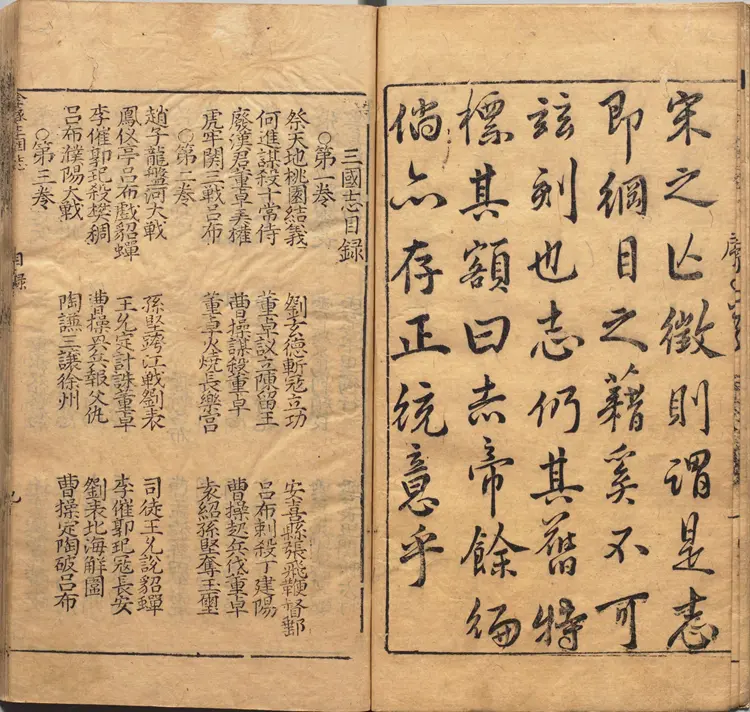 宋之亾徵則謂是志
即綱目之藉奚不可
玆刻也志仍其舊特
標其額曰赤帝餘編
倘亦存正統意乎
三國志目録
○第一卷
祭天地桃園結義 劉玄德斬冦立功 安喜縣張飛鞭督郵
何進謀殺十常侍 董卓議立陳留王 呂布刺殺丁建陽
廢漢君董卓弄權 曹操謀殺董卓 曹操起兵伐董卓
虎牢関三戰呂布 董卓火燒長樂宫 袁紹孫堅奪玉璽
○第二卷
趙子龍盤河大戰 孫堅跨江戰劉表 司徒王允說貂蟬
鳳仪亭呂布戲貂蟬 王允定計誅董卓 李傕郭汜寇長安
李傕郭汜殺樊稠 曹操興兵報父仇 劉表北海解圍
呂布濮陽大戰 陶謙三讓徐州 曹操定陶破呂布
○第三卷
三國志 目録